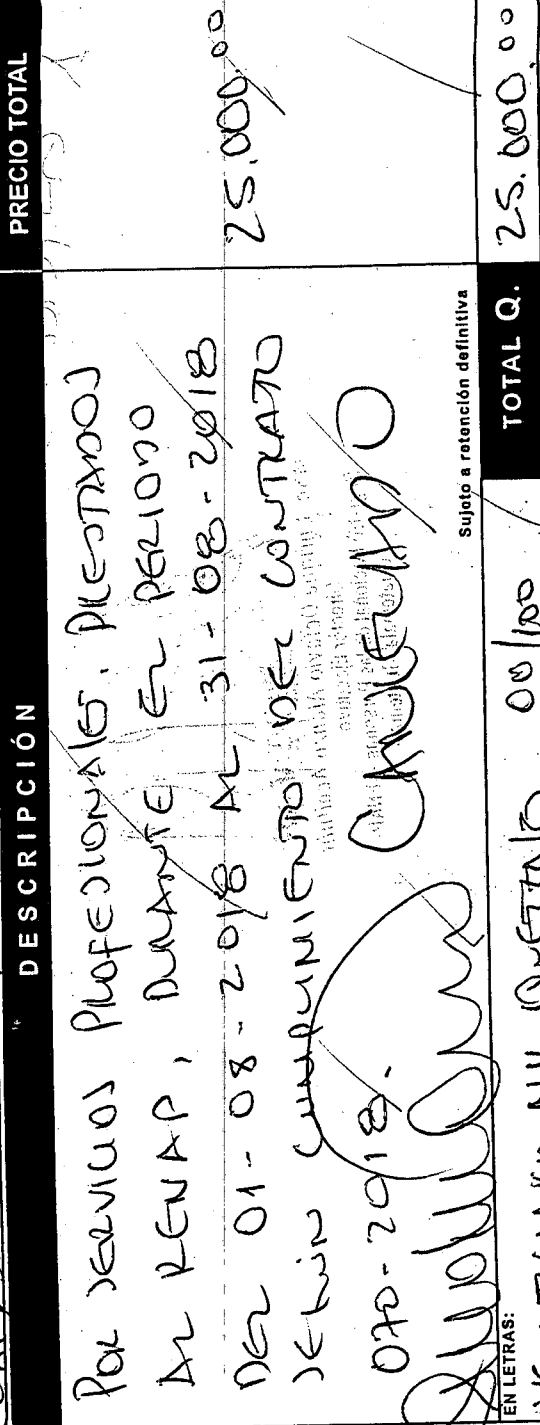 DESCRIPCIÓN PRECIO TOTAL
POR SERVICIOS PROFESIONALES, PRESTADOS
AL RENAP, DURANTE EL PERIODO
DEL 01-08-2018 AL 31-08-2018 25.000.00
SEGÚN CUMPLIMIENTO DEL CONTRATO
070-2018.
CANCELADO
Sujeto a retención definitiva
EN LETRAS:
MIL QUETZALES 00/100 TOTAL Q. 25.000.00